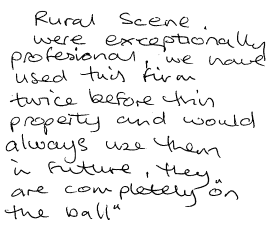 Rural Scene.
were exceptionally
profesional, we have
used this firm
twice before this
property and would
always use them
in future, they
are completely "on
the ball"